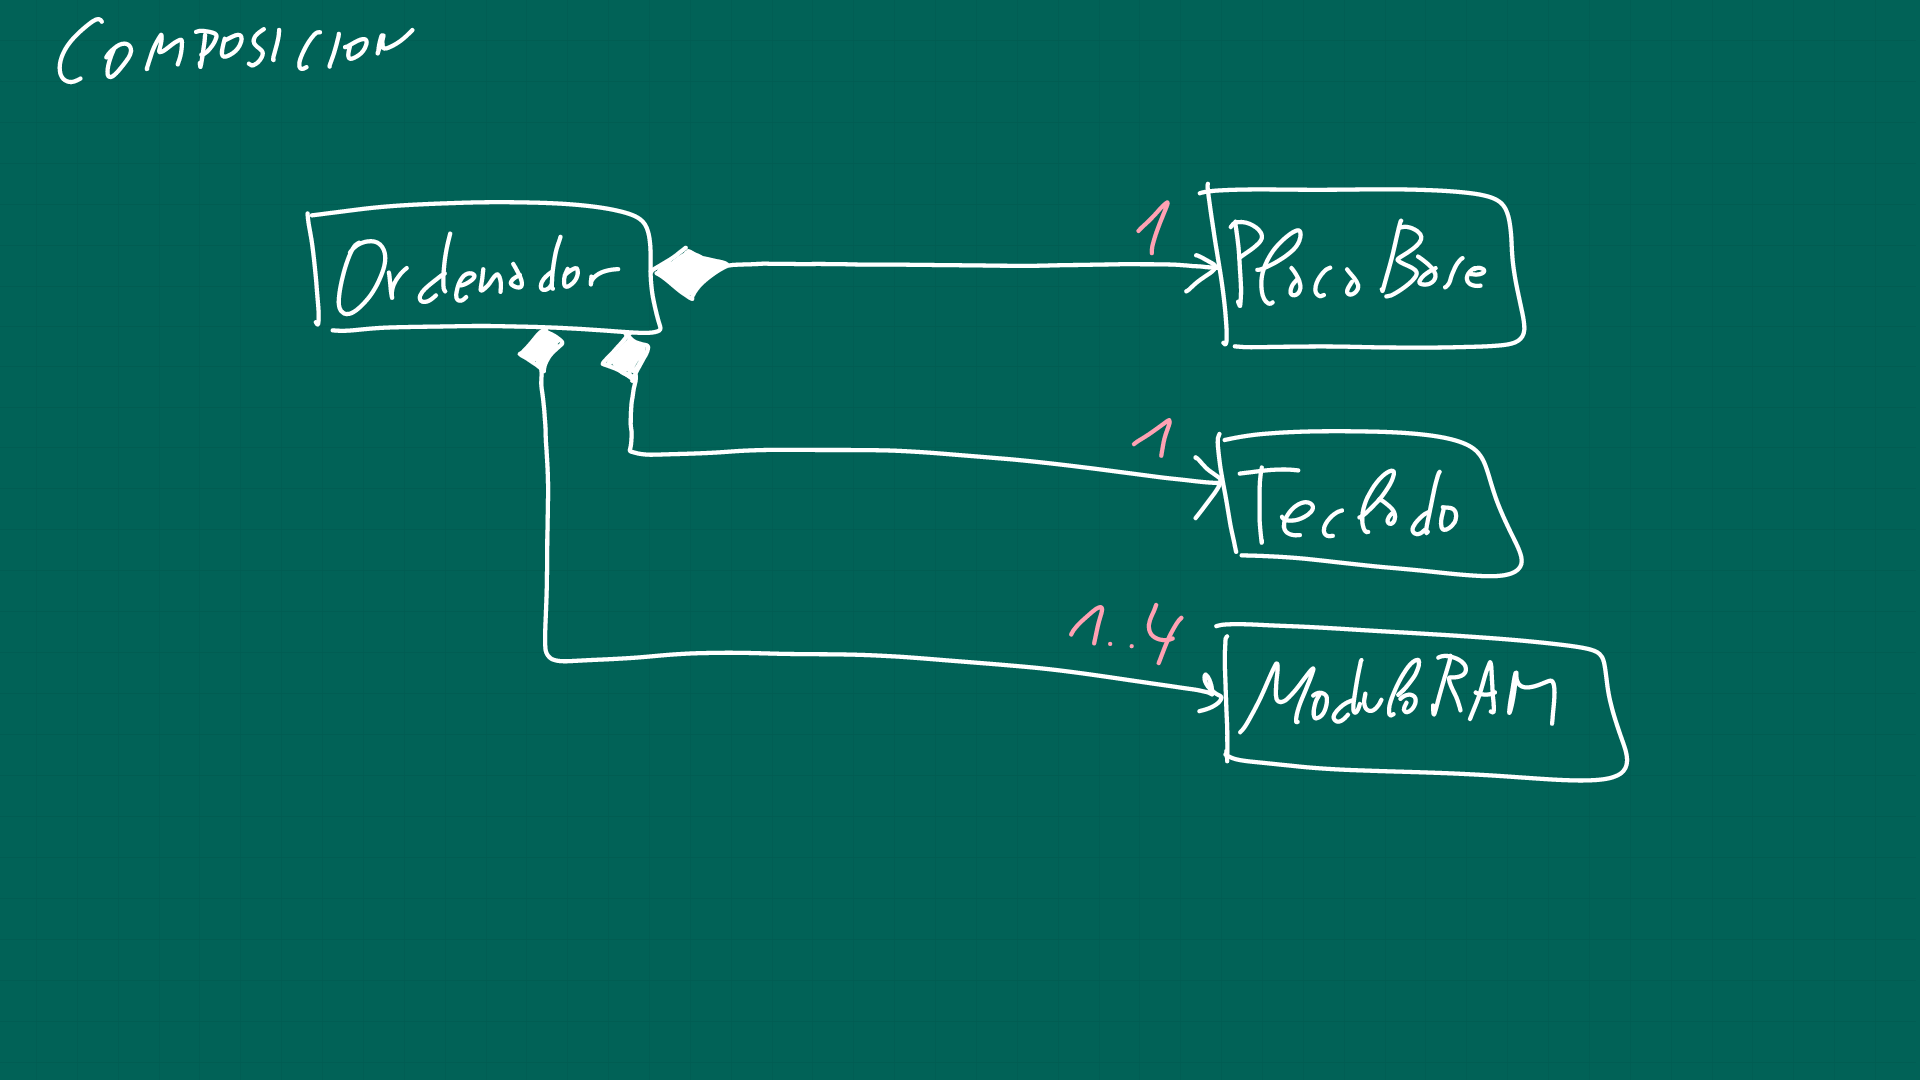 COMPOSICION
Ordenador
1
PlacaBase
1
Teclado
1..4
ModuloRAM